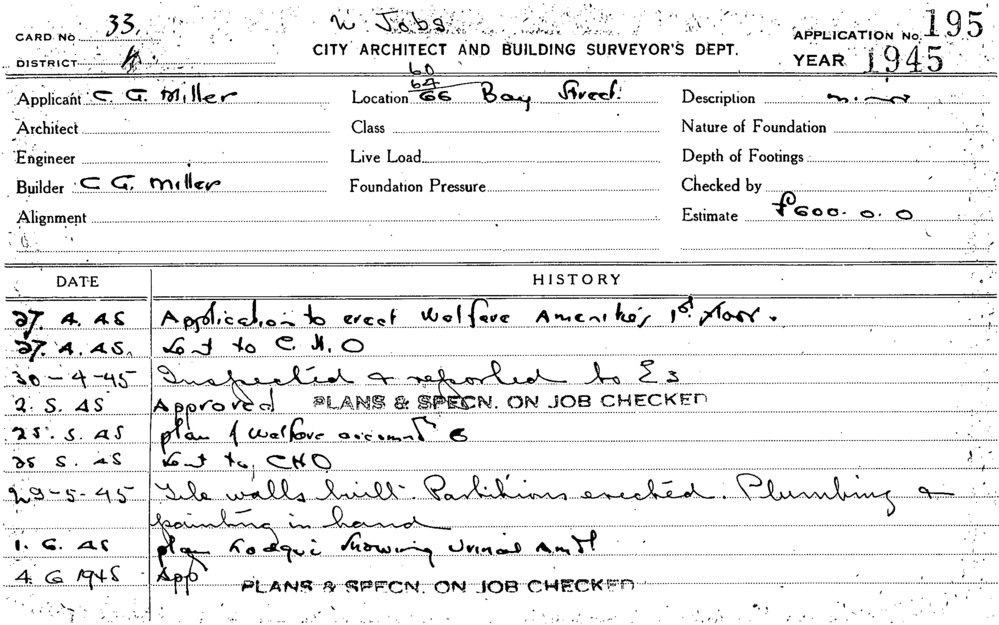 CARD No 33.
W Jobs
CITY ARCHITECT AND BUILDING SURVEYOR'S DEPT.
APPLICATION No. 195
DISTRICT
YEAR 1945
Applicant C G. Miller
60
64
Location 66 Bay Street.
Description
Architect
Class
Nature of Foundation
Engineer
Live Load
Depth of Footings
Builder C G. Miller
Foundation Pressure
Checked by
Alignment
Estimate £600. 0. 0
DATE HISTORY
27. 4. 45 Application to erect Welfare Amenities 1st floor.
27. 4. 45. Sent to C.H.O
30-4-45 Inspected & reported to E3
2. 5. 45 Approved PLANS & SPECN. ON JOB CHECKED
25. 5. 45 plan of Welfare
25 5. 45 Sent to CHO
29-5-45 Tile walls built. Partitions erected. Plumbing &
painting in hand
1. 6. 45 plan Lodged showing Urinal Amdt
4. 6 1945 App PLANS & SPECN. ON JOB CHECKED